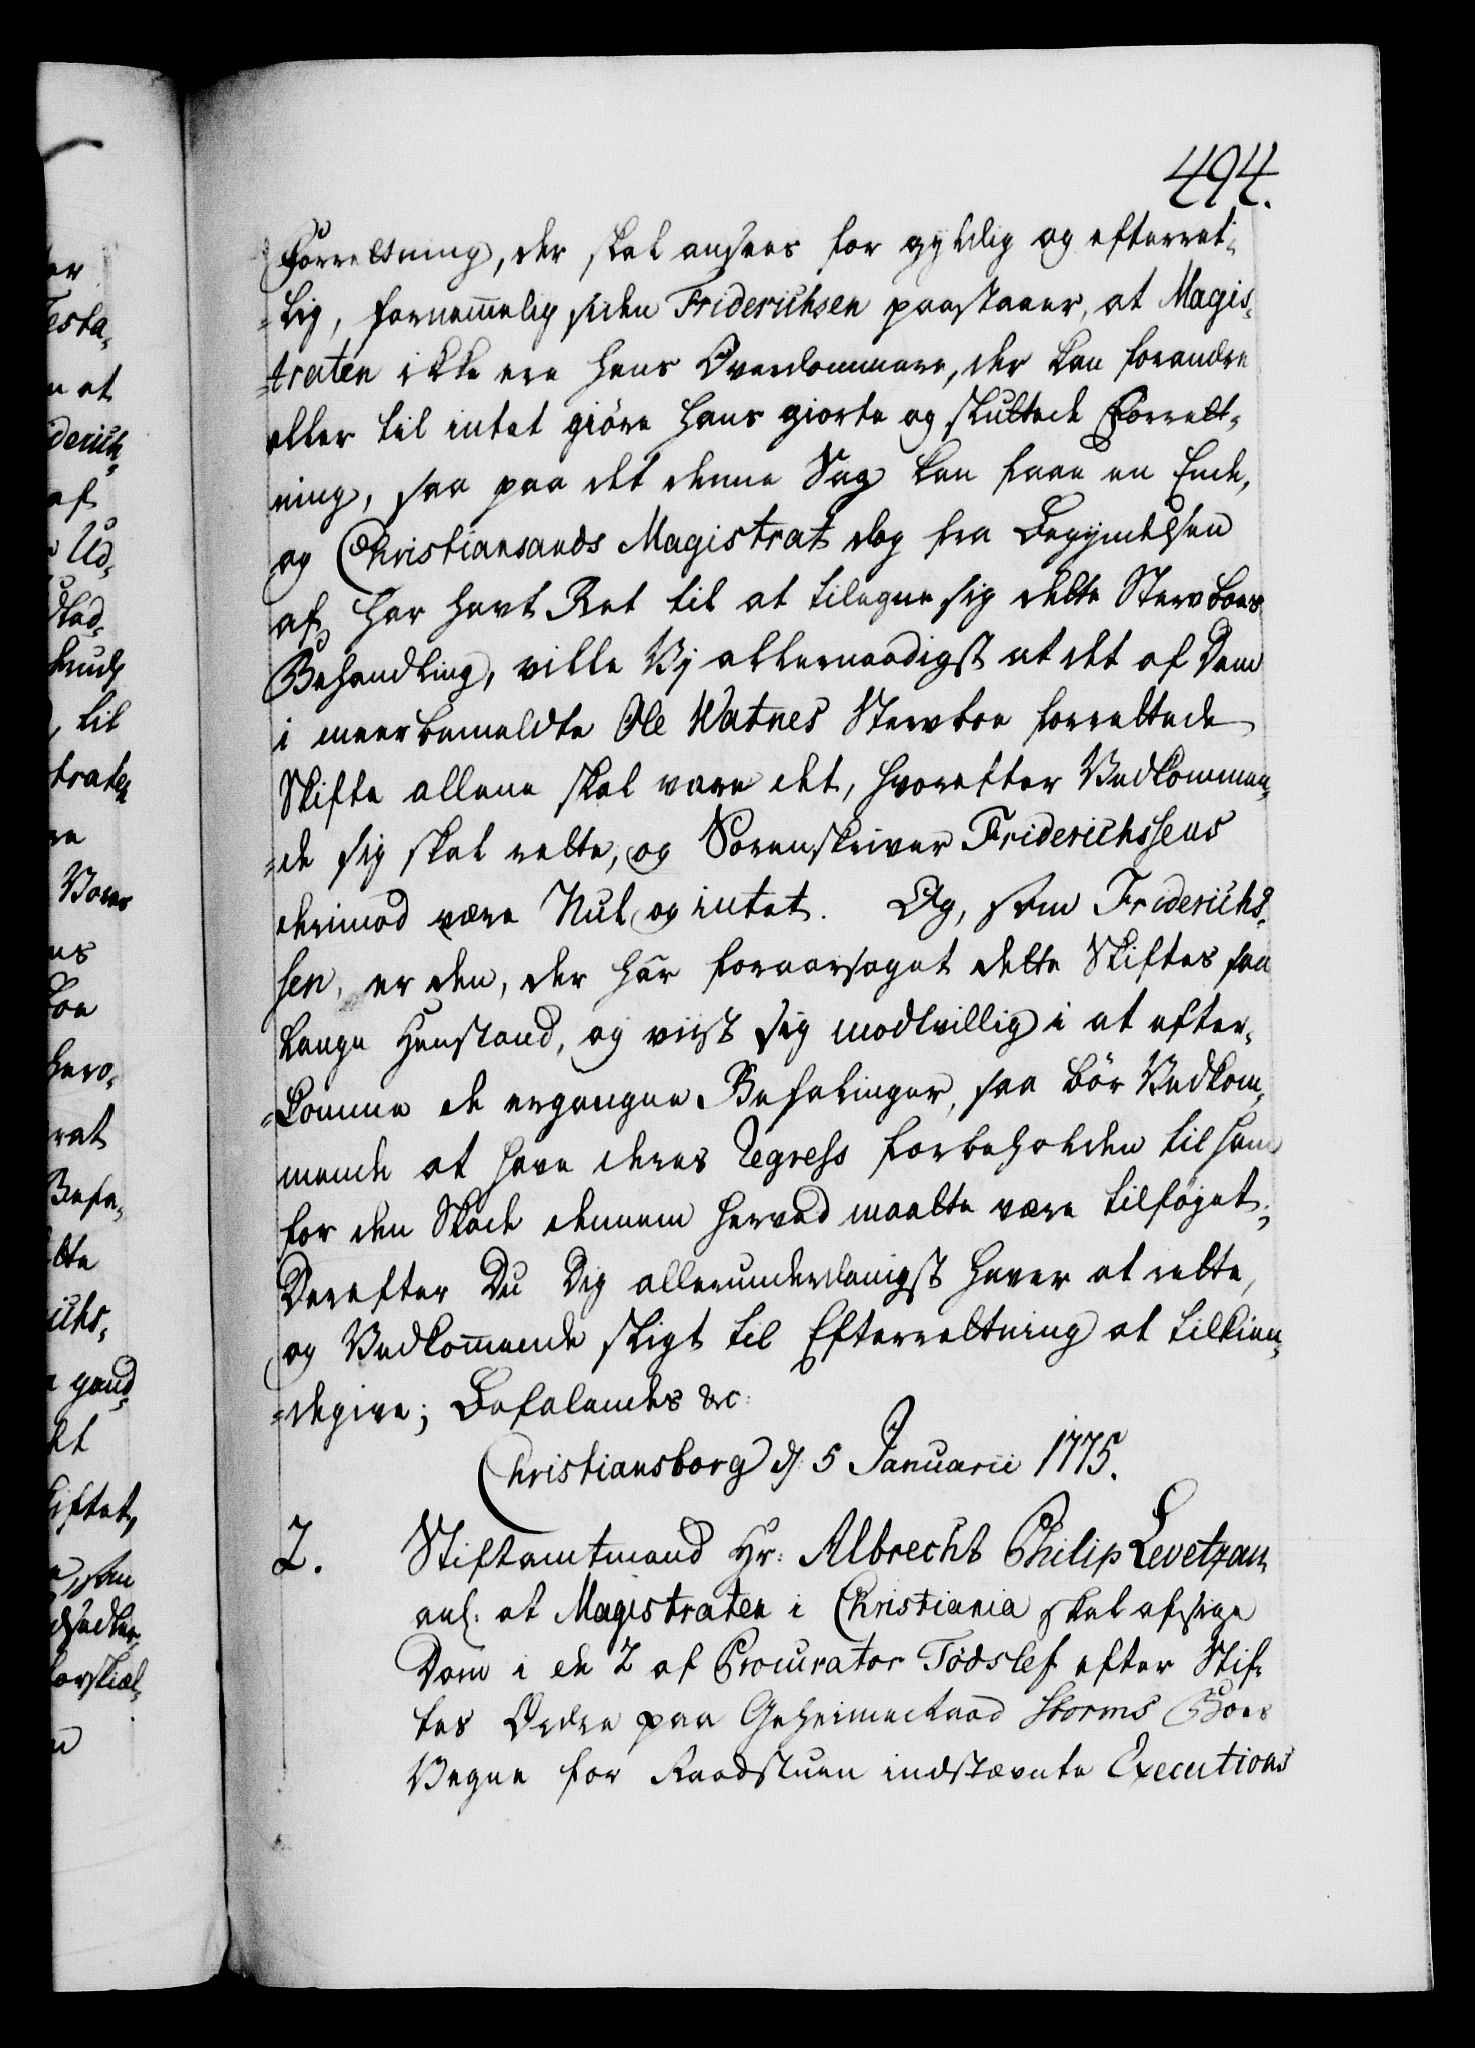 494.
Forretning, der skal ansees for gyldig og efterret-
=lig, fornemmelig siden Friderichsen paastaaer, at Magis-
=traten ikke ere hans Overdommere, der kan forandre
eller til intet giöre hans giorte og sluttede Forrett-
ning, saa paa det denne Sag kan faae en Ende,
og Christiansands Magistrat dog fra Begyndelsen
af har havt Ret til at tilegne sig dette Stervboes
Behandling, ville Vj allernaadigst at det af Dem
i meerbemeldte Ole Watnes Stervboe forrettede
Skifte allene skal være det, hvorefter Vedkommen-
=de sig skal rette, og Sorenskriver Friderichssens
derimod være Nul og intet. Og, som Friderichs-
sen, er den, der har foraarsaget dette Skiftes saa
lange Henstand, og viist sig modvillig i at efter-
=komme de ergangne Befalinger, saa bör Vedkom-
mende at have deres Regress forbeholden til ham
for den Skade dennem herved maatte være tilföjet.
Derefter Du Dig allerunderdanigst haver at rette,
og Vedkommende sligt til Efterretning at tilkien-
=degive; Befalendes &c:
Christiansborg d: 5 Januarii 1775.
2. Stiftamtmand Hr: Albrecht Philip Levetzau
anl: at Magistraten i Christiania skal afsige
Dom i de 2 af Procurator Tödslef efter Stif-
tes Ordre paa Geheimeraad Storms Boes
Vegne for Raadstuen indstævnte Executions